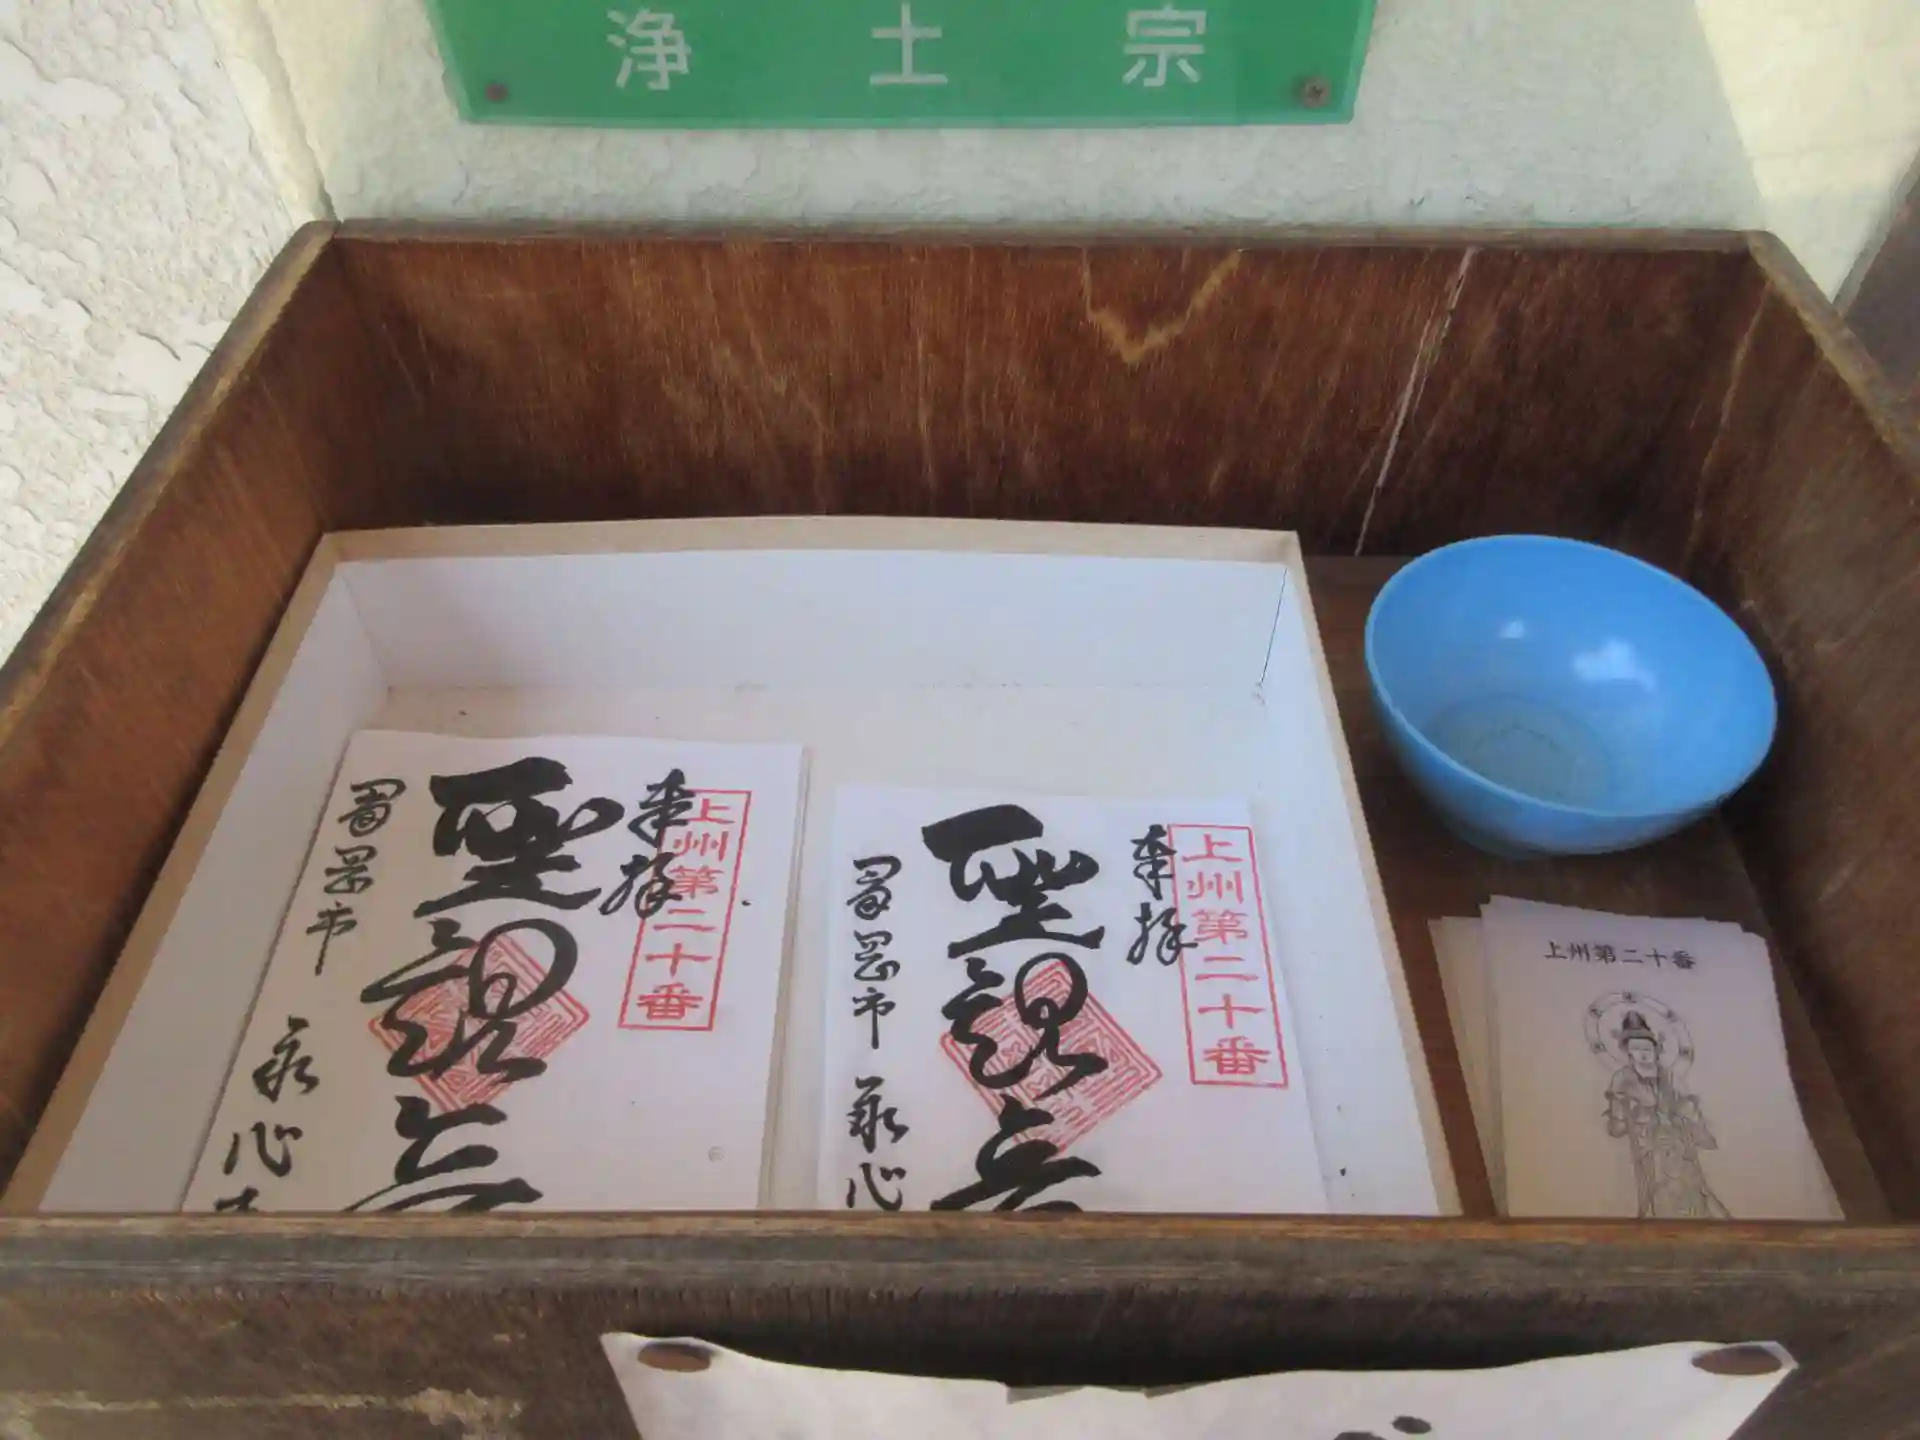 浄土宗
奉拝
上州第二十番
聖観音
富岡市 永心寺
奉拝
上州第二十番
聖観音
富岡市 永心
上州第二十番